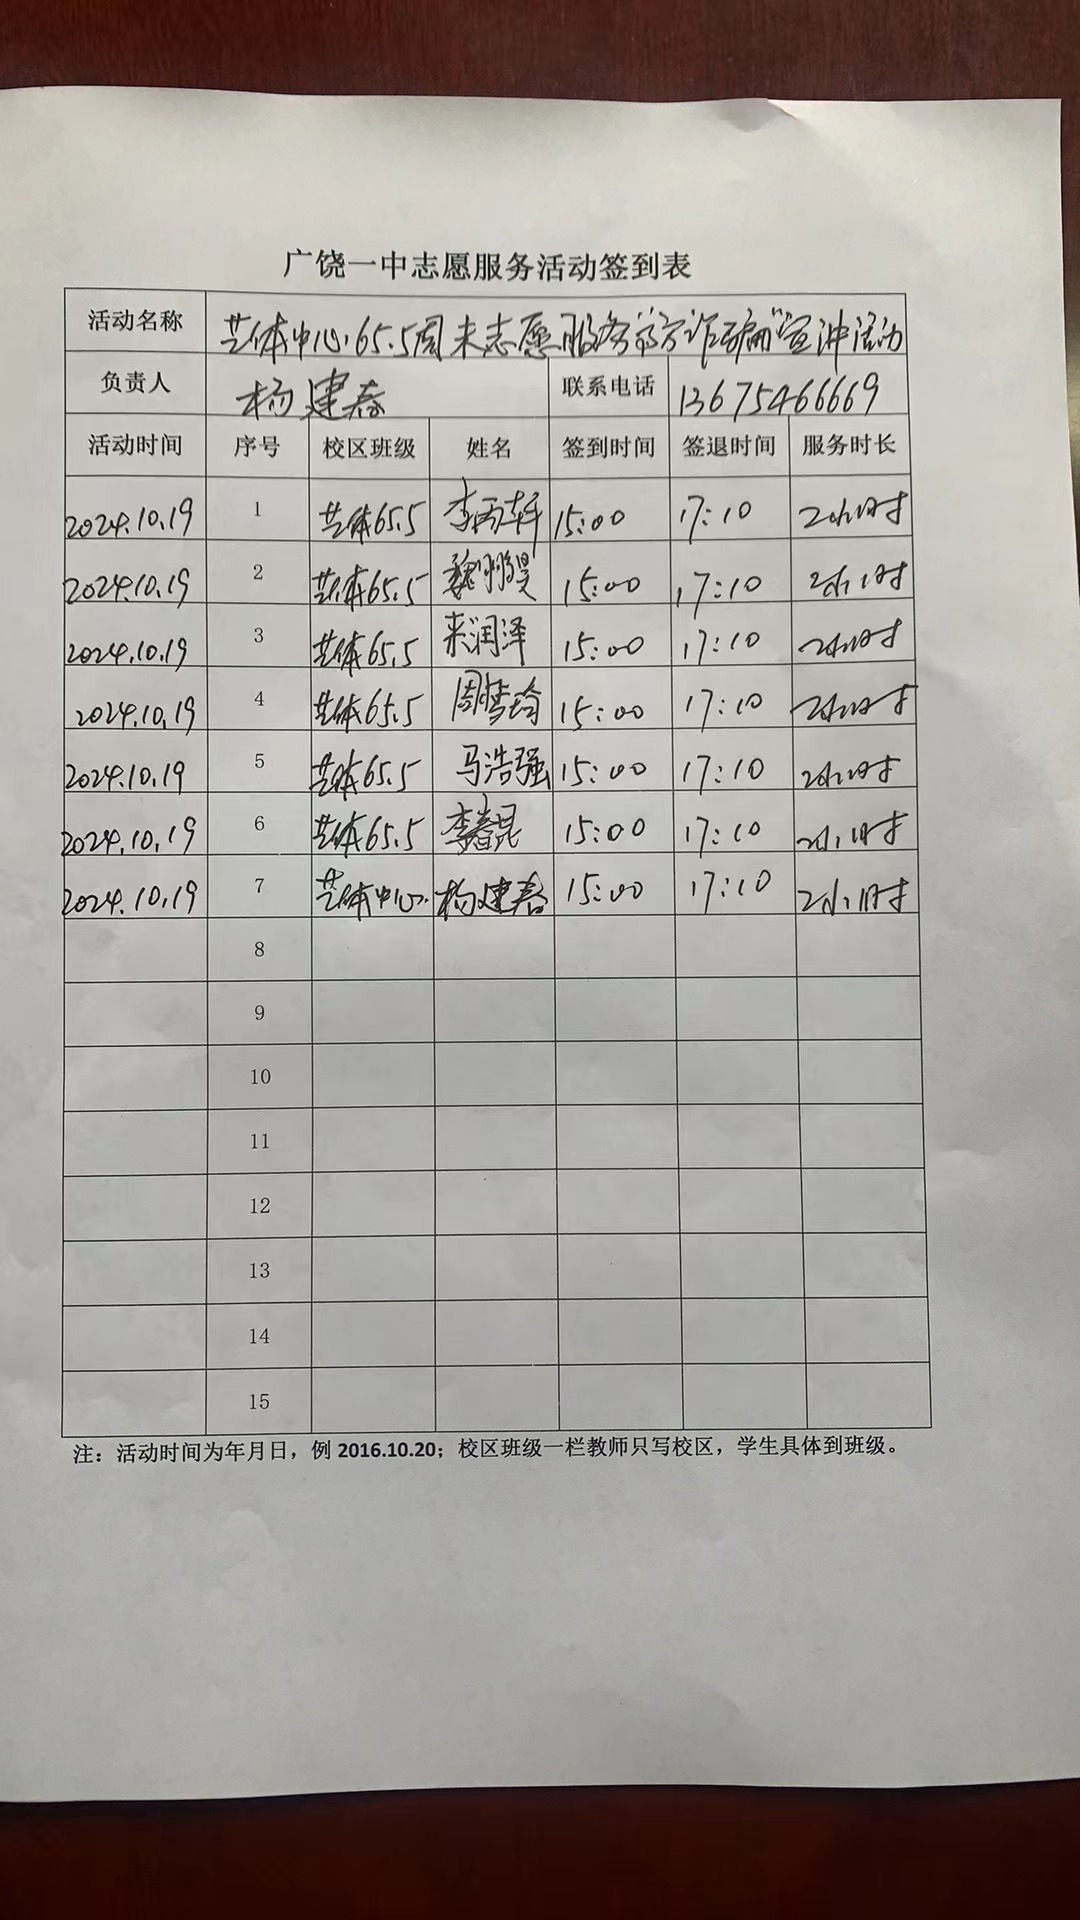 广饶一中志愿服务活动签到表
活动名称 艺体中心65.5周末志愿服务"防诈骗"宣讲活动
负责人 杨建春 联系电话 13675466669
活动时间 序号 校区班级 姓名 签到时间 签退时间 服务时长
2024.10.19 1 艺体65.5 15:00 17:10 2小时
2024.10.19 2 艺体65.5 魏鹏昊 15:00 17:10 2小时
2024.10.19 3 艺体65.5 来润泽 15:00 17:10 2小时
2024.10.19 4 艺体65.5 15:00 17:10 2小时
2024.10.19 5 艺体65.5 马浩强 15:00 17:10 2小时
2024.10.19 6 艺体65.5 李春昆 15:00 17:10 2小时
2024.10.19 7 艺体中心 杨建春 15:00 17:10 2小时
8
9
10
11
12
13
14
15
注：活动时间为年月日，例 2016.10.20；校区班级一栏教师只写校区，学生具体到班级。